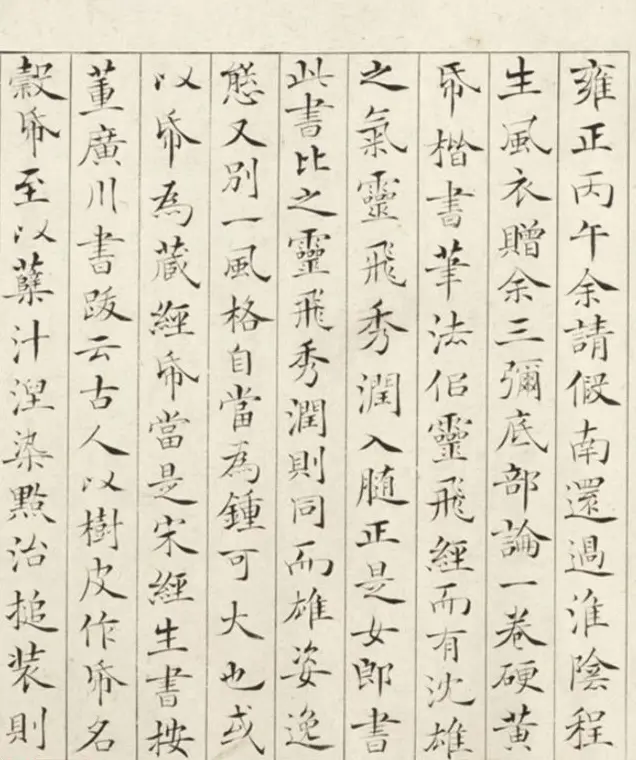 雍正丙午余請假南還過淮陰程
生風衣贈余三彌底部論一卷硬黃
帋楷書筆法侶靈飛經而有沈雄
之氣靈飛秀潤入髄正是女郎書
此書比之靈飛秀潤則同而雄姿逸
態又別一風格自當為鍾可大也或
以帋為藏經帋當是宋經生書按
董廣川書跋云古人以樹皮作帋名
縠帋至以蘗汁涅染點治搥装則